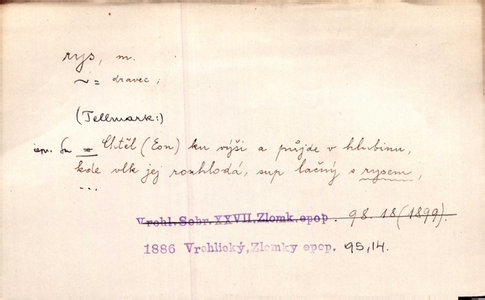 rys, m.
~ = dravec;
(Tellmark:)
= Chtěl (Eon) ku výši a půjde v hlubinu,
kde vlk jej rozhlodá, sup lačný s rysem,
...
Vrchl.Sobr.XXVII.Zlomk.epop. 98.18 (1899).
1886 Vrchlický, Zlomky epop. 95,14.